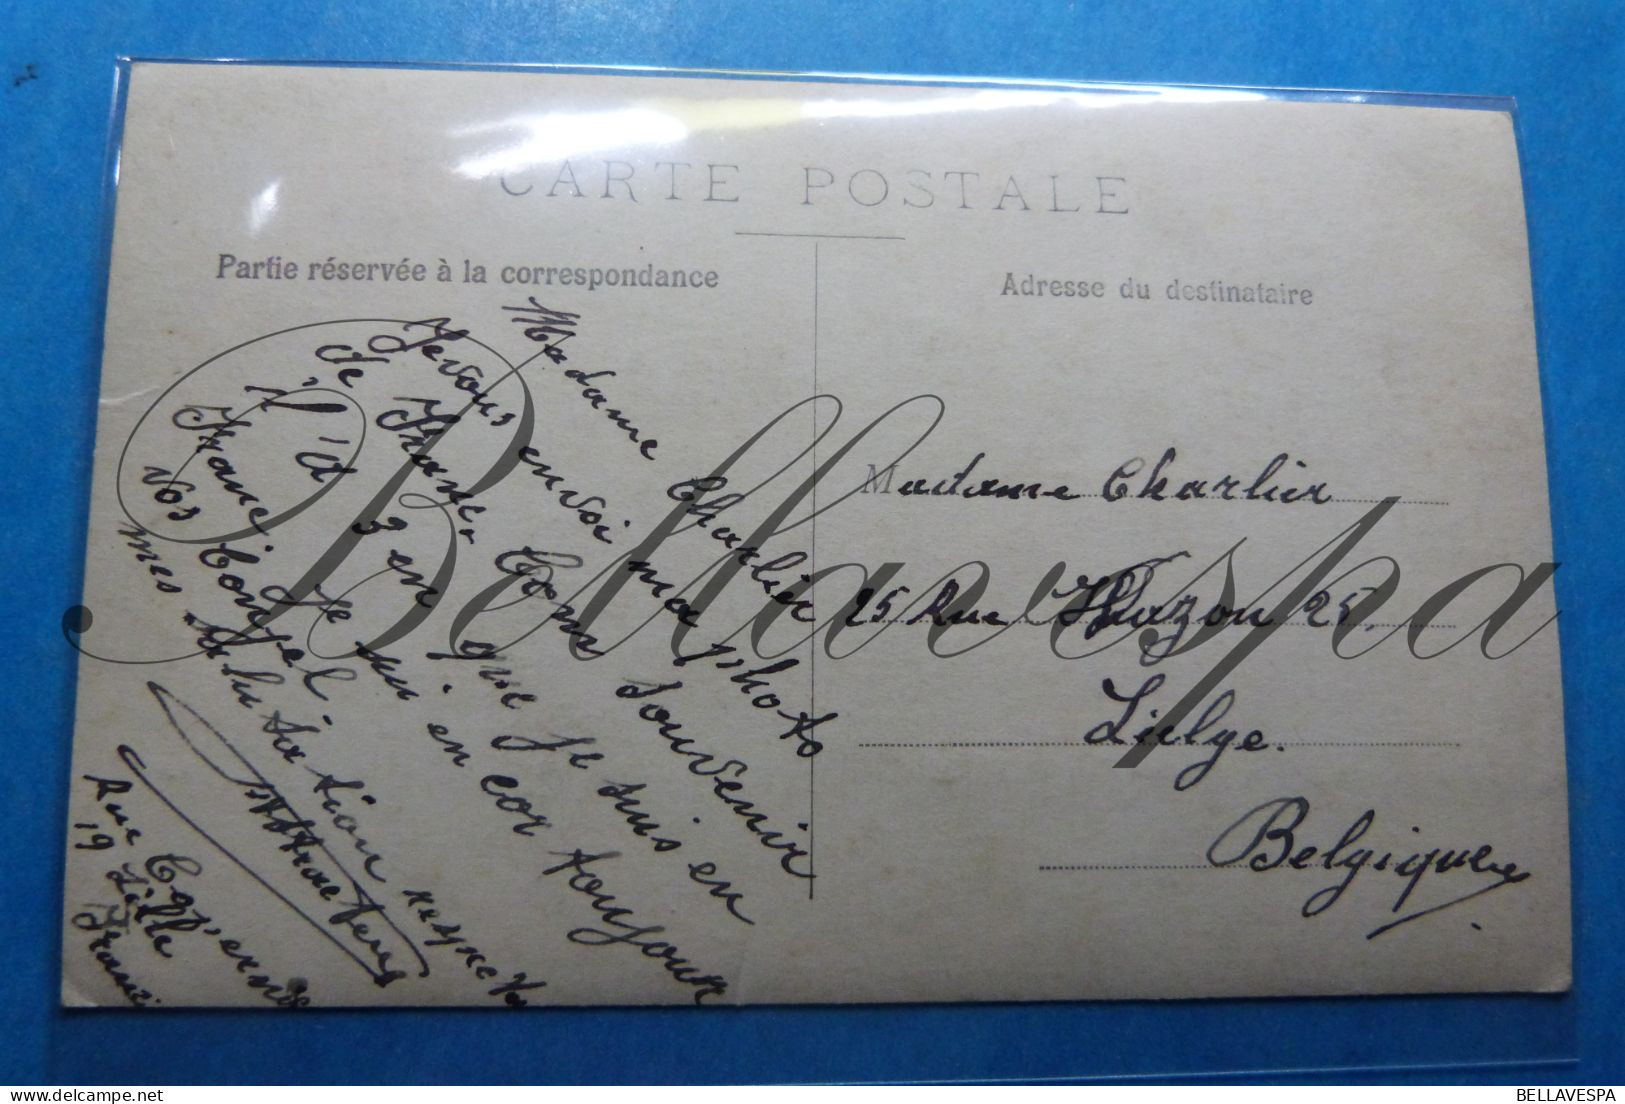 CARTE POSTALE
Partie réservée à la correspondance
Adresse du destinataire
Madame Charlier
Je vous envoi ma photo
de France Comme souvenir
il 'a 3 en que je suis en
France Je sui en cor toujour
vos
mes Salu sa tion respec
Rue
19 Lille
France
Madame Charlier
25 Rue Wazon 25.
Lielge.
Belgique
Bellavespa
BELLAVESPA